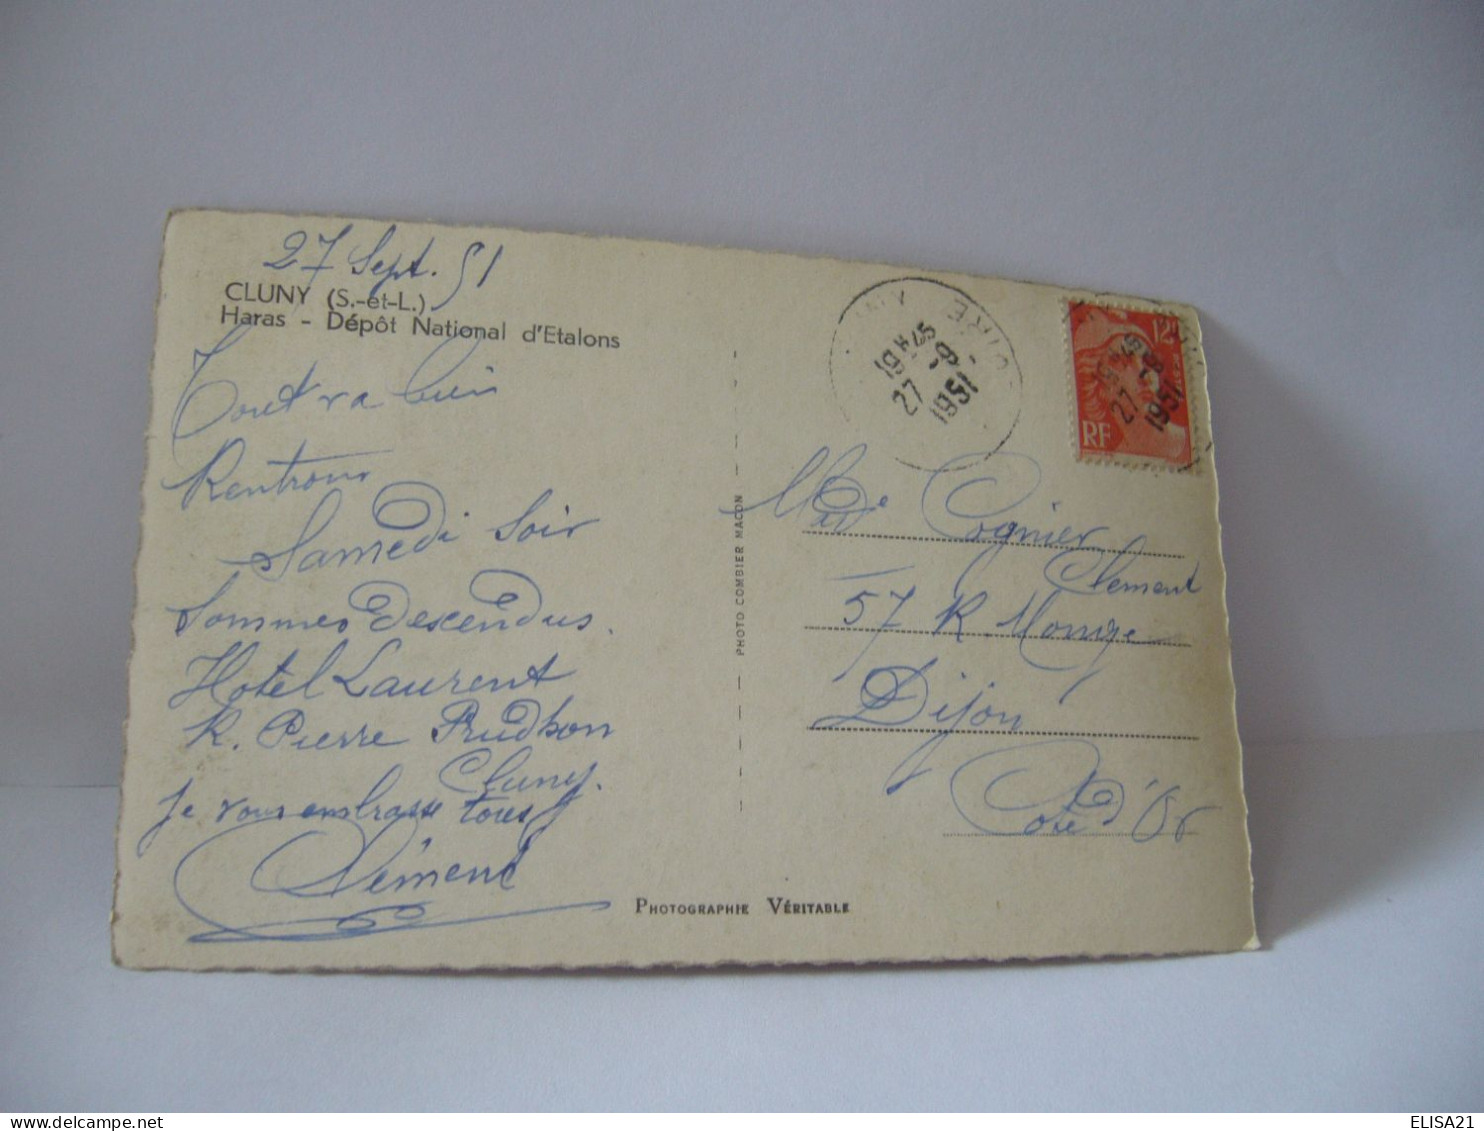 27 Sept. 51
CLUNY (S.-et-L.)
Haras - Dépôt National d'Etalons
Tout va bien
Rentrons
Samedi Soir
Sommes Descendus.
Hotel Laurent
R. Pierre Prudhon
Cluny.
Je vous embrasse tous
Clément
19H45
27 -9-
1951
12F
RF
19H45
27 -9
1951
PHOTO COMBIER MACON
Cognier
Clement
57 R. Monge
Dijon
Cote d'Or
PHOTOGRAPHIE VÉRITABLE
ELISA21